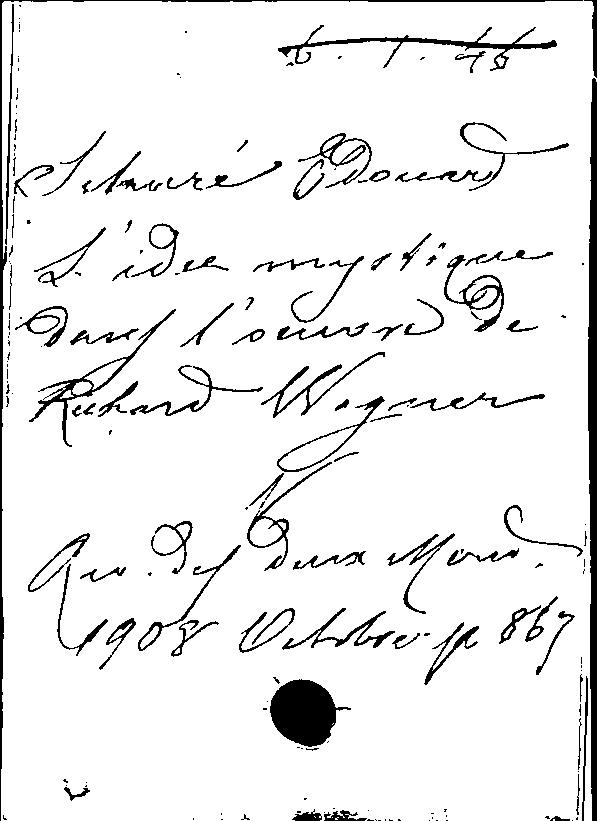 6.1.46
Schuré Édouard
L'idée mystique
dans l'œuvre de
Richard Wagner
V
Rev. des deux Mond.
1908 Octobre p 867